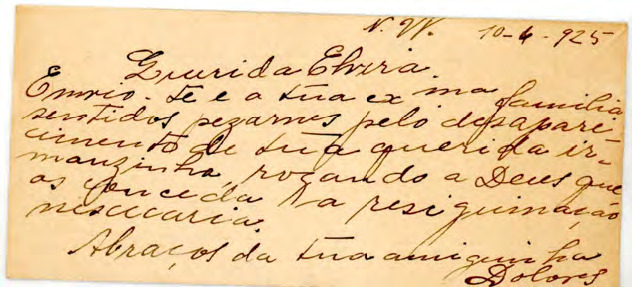 N. W. 10-6-925
Querida Elvira.
Envio-te e a tua exma familia
sentidos pezames pelo desapare-
cimento de tua querida ir-
manzinha, rogando a Deus que
os conceda a resiguinação
nescecaria.
Abraços da tua amiguinha
Dolores